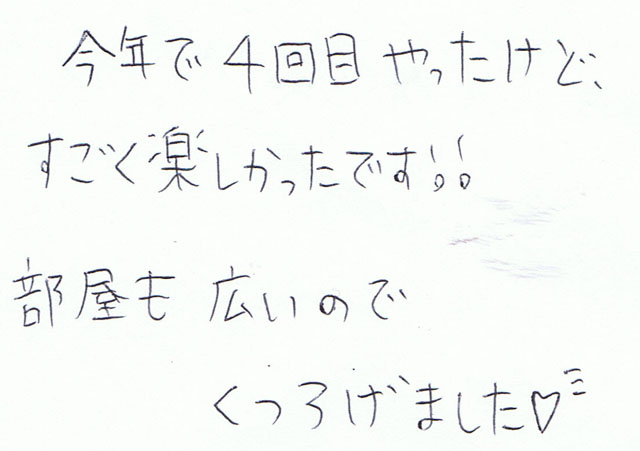 今年で4回目やったけど、
すごく楽しかったです!!
部屋も広いので
くつろげました♡